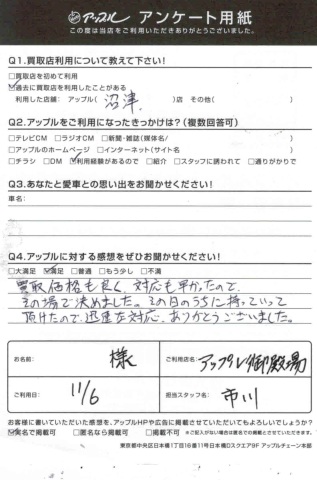 アップル アンケート用紙
この度は当店をご利用いただきありがとうございました。
Q1.買取店利用について教えて下さい!
□買取店を初めて利用
☑過去に買取店を利用したことがある
利用した店舗: アップル( 沼津 )店 その他( )
Q2.アップルをご利用になったきっかけは?(複数回答可)
□テレビCM □ラジオCM □新聞・雑誌(媒体名/ )
□アップルのホームページ □インターネット(サイト名 )
□チラシ □DM ☑利用経験があるので □紹介 □スタッフに誘われて □通りがかりで
Q3.あなたと愛車との思い出をお聞かせください!
車名:
Q4.アップルに対する感想をぜひお聞かせください!
□大満足 ☑満足 □普通 □もう少し □不満
買取価格も良く、対応も早かったので、
その場で決めました。その日のうちに持っていって
頂けたので、迅速な対応、ありがとうございました。
お名前: 様 ご利用店名: アップル御殿場
ご利用日: 11/6 担当スタッフ名: 市川
お客様に書いていただいた感想を、アップルHPや広告に掲載させていただいてもよろしいでしょうか?
☑実名で掲載可 □匿名なら掲載可 □掲載不可 ※ご記入がない場合は匿名での掲載とさせていただきます。
東京都中央区日本橋1丁目16番11号日本橋Dスクエア9F アップルチェーン本部